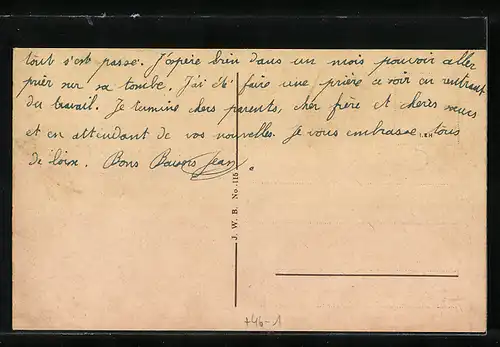 tout s'est passé. J'espère bien dans un mois pouvoir aller
prier sur sa tombe. J'ai été faire une prière ce soir en rentrant
du travail. Je termine chers parents, cher frère et chères sœurs
et en attendant de vos nouvelles. Je vous embrasse tous
de loin. Bons Baisers Jean
J. W. B. No. 115
+46-1